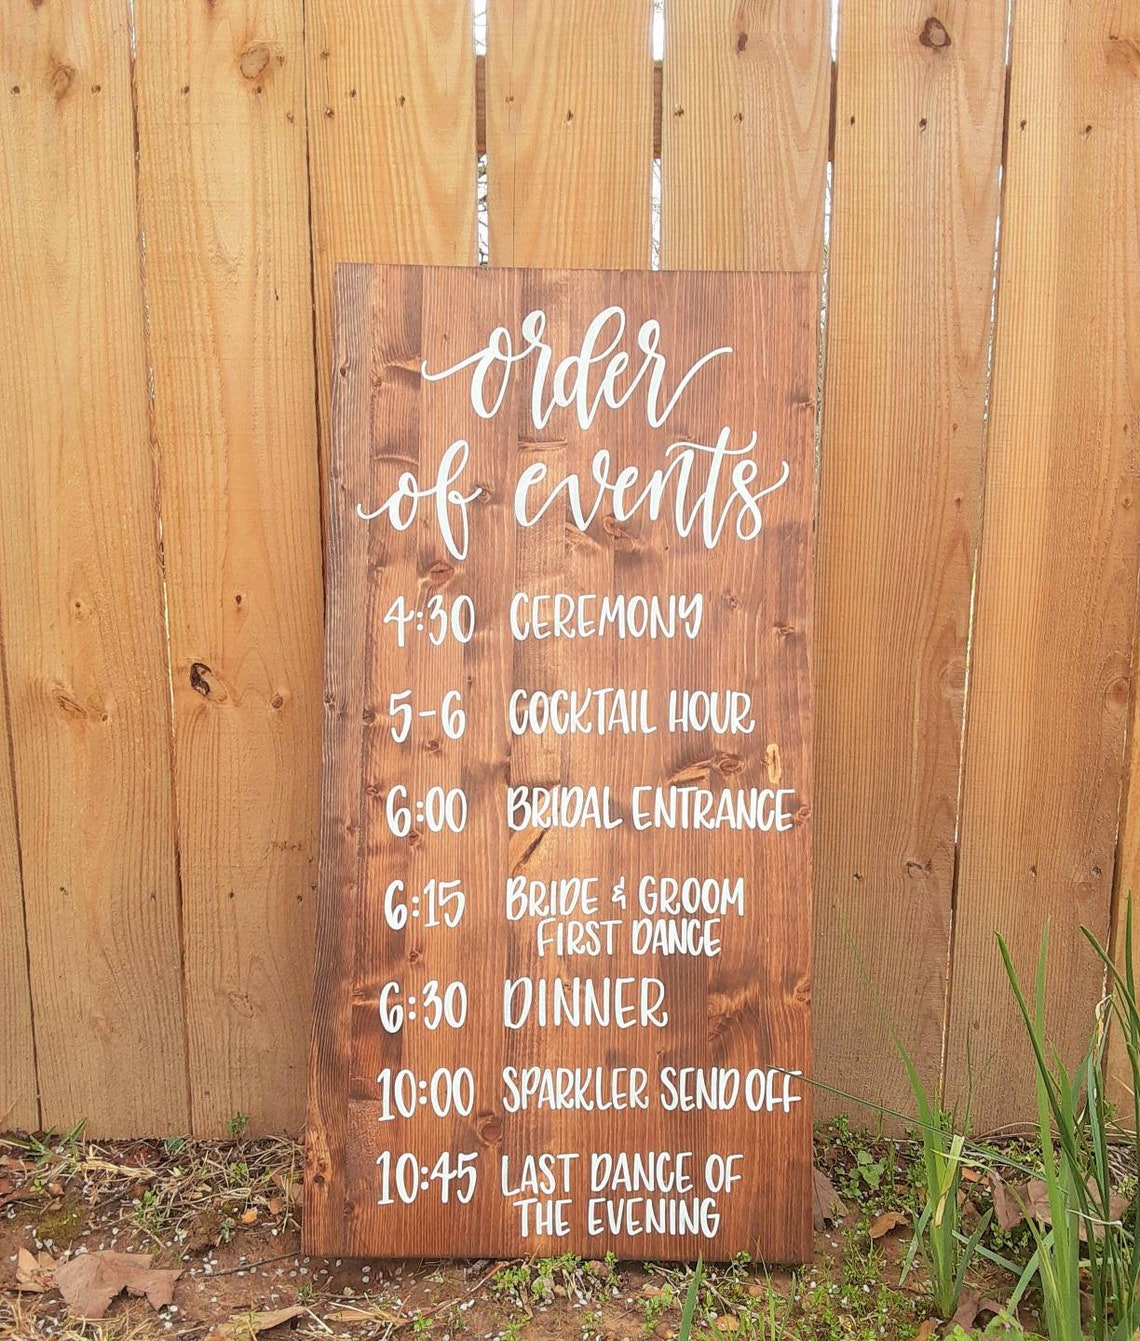 order
of events
4:30 CEREMONY
5-6 COCKTAIL HOUR
6:00 BRIDAL ENTRANCE
6:15 BRIDE & GROOM
FIRST DANCE
6:30 DINNER
10:00 SPARKLER SEND OFF
10:45 LAST DANCE OF
THE EVENING